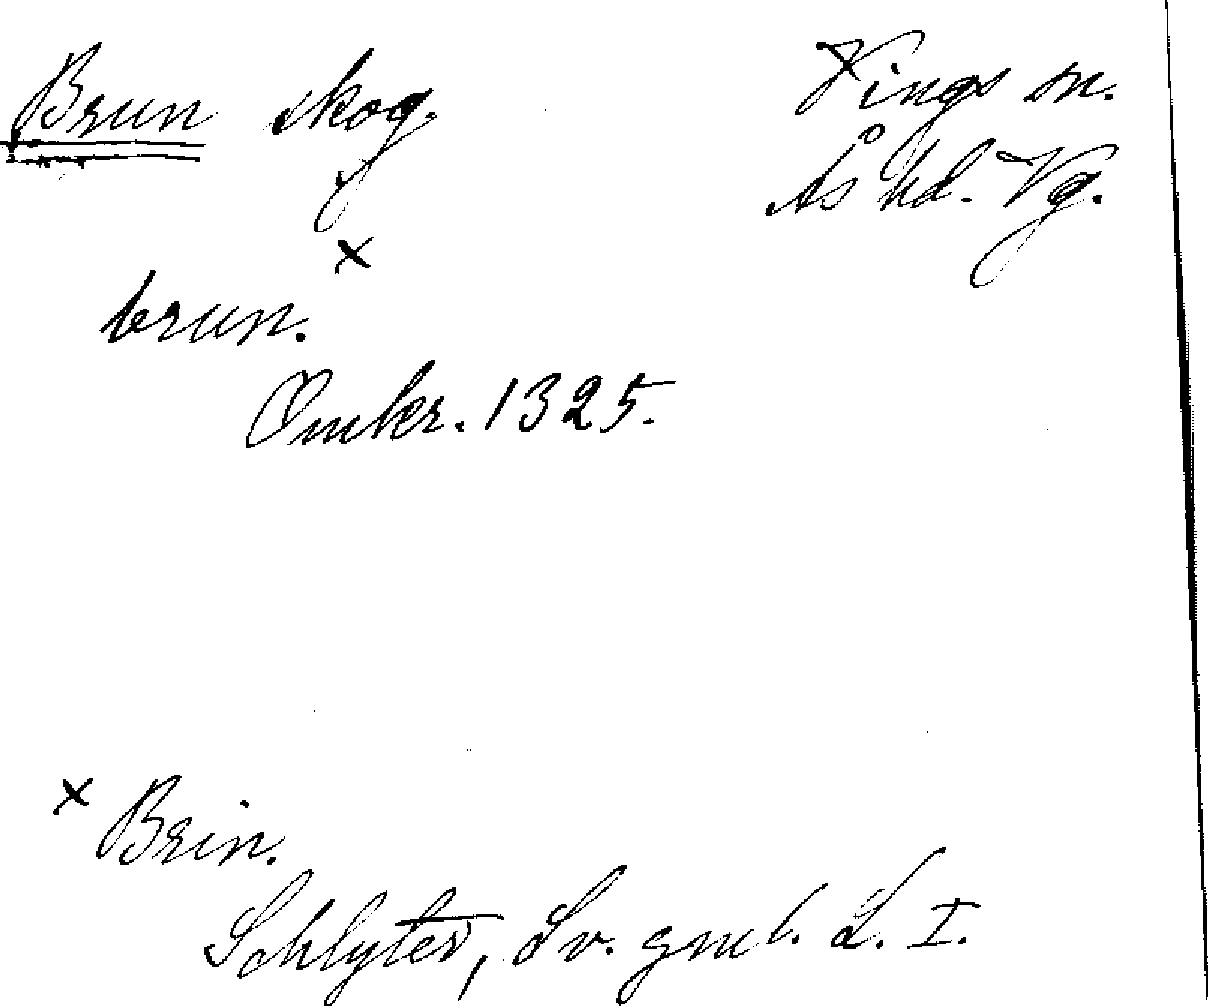 Brun skog.
Vings sn.
Ås hd. Vg.
brun. x
Omkr. 1325.
x Brin.
Schlyter, Sv. gml. L. I.